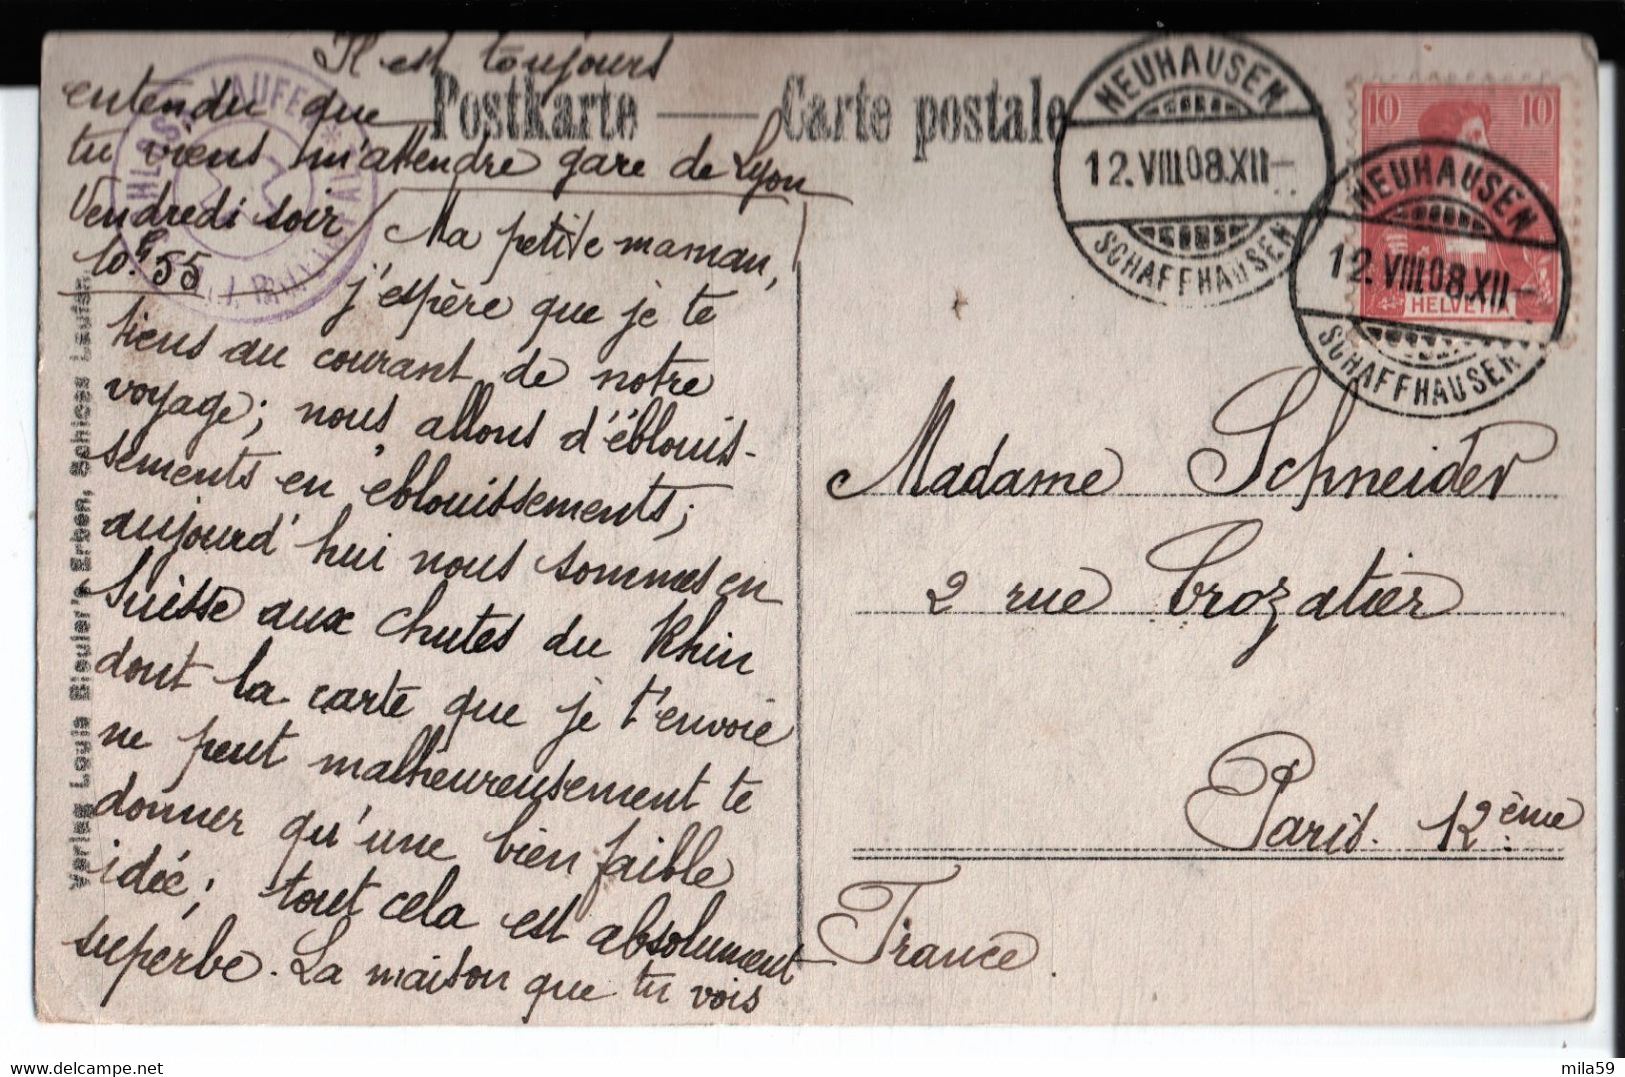 Il est toujours
entendu que
tu viens m'attendre gare de Lyon
Vendredi soir
10h 55
Postkarte — Carte postale
Ma petite maman,
j'espère que je te
tiens au courant de notre
voyage; nous allons d'éblouis-
sements en éblouissements;
aujourd'hui nous sommes en
Suisse aux chutes du Rhin
dont la carte que je t'envoie
ne peut malheureusement te
donner qu'une bien faible
idée; tout cela est absolument
superbe. La maison que tu vois
Verlag Louis Bleuler's Erben, Schloss Laufen
SCHLOSS LAUFEN
NEUHAUSEN
12.VIII.08.XII-
SCHAFFHAUSEN
10 10
HELVETIA
NEUHAUSEN
12.VIII.08.XII-
SCHAFFHAUSEN
Madame Schneider
2 rue Crozatier
Paris. 12ème
France.
delcampe.net
mila59